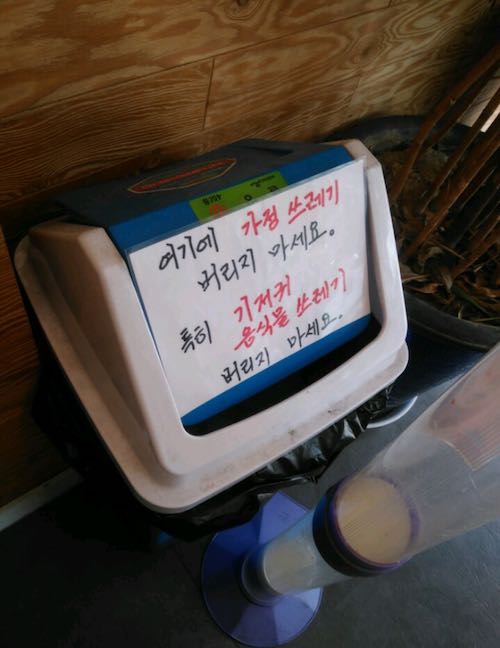 여기에 가정 쓰레기
버리지 마세요.
특히 기저귀
음식물 쓰레기
버리지 마세요.